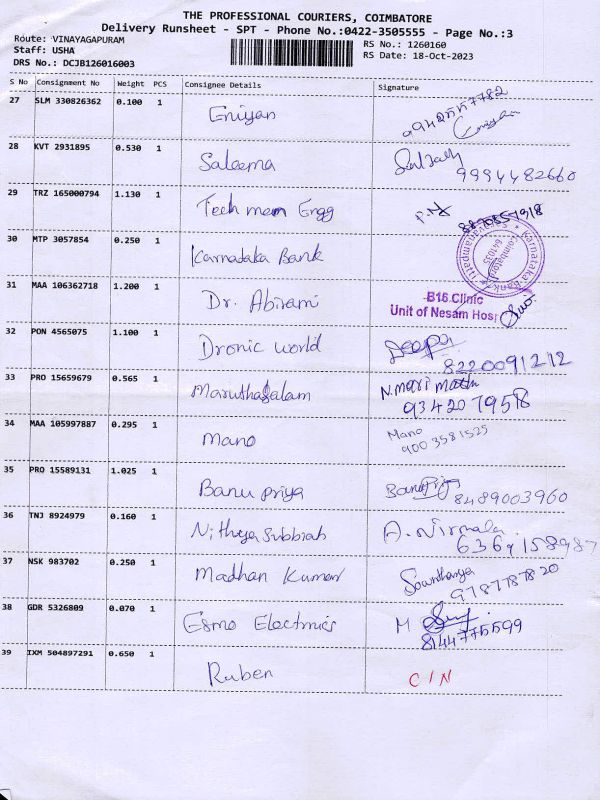 THE PROFESSIONAL COURIERS, COIMBATORE
Delivery Runsheet - SPT - Phone No.:0422-3505555 - Page No.:3
Route: VINAYAGAPURAM
Staff: USHA
DRS No.: DCJB126016003
RS No.: 1260160
RS Date: 18-Oct-2023
S No Consignment No Weight PCS Consignee Details Signature
27 SLM 330826362 0.100 1 Eniyan
28 KVT 2931895 0.530 1 Saleema 9994482660
29 TRZ 165000794 1.130 1 Tech men Engg
30 MTP 3057854 0.250 1 Karnataka Bank
Karnataka Bank
Coimbatore
641035
31 MAA 106362718 1.200 1 Dr. Abirami
B16 Clinic
Unit of Nesam Hosp
32 PON 4565075 1.100 1 Dronic world Deepa
8220091212
33 PRO 15659679 0.565 1 Maruthasalam N.mari muthu
9342079518
34 MAA 105997887 0.295 1 Mano Mano
9003581525
35 PRO 15589131 1.025 1 Banu priya BanuPriya
8489003960
36 TNJ 8924979 0.160 1 Nithya Subbiah A. Nirmala
6369158987
37 NSK 983702 0.250 1 Madhan Kumar Sowthanya
9787787820
38 GDR 5326809 0.070 1 Esmo Electrnics M
8144775599
39 IXM 504897291 0.650 1 Ruben C/N